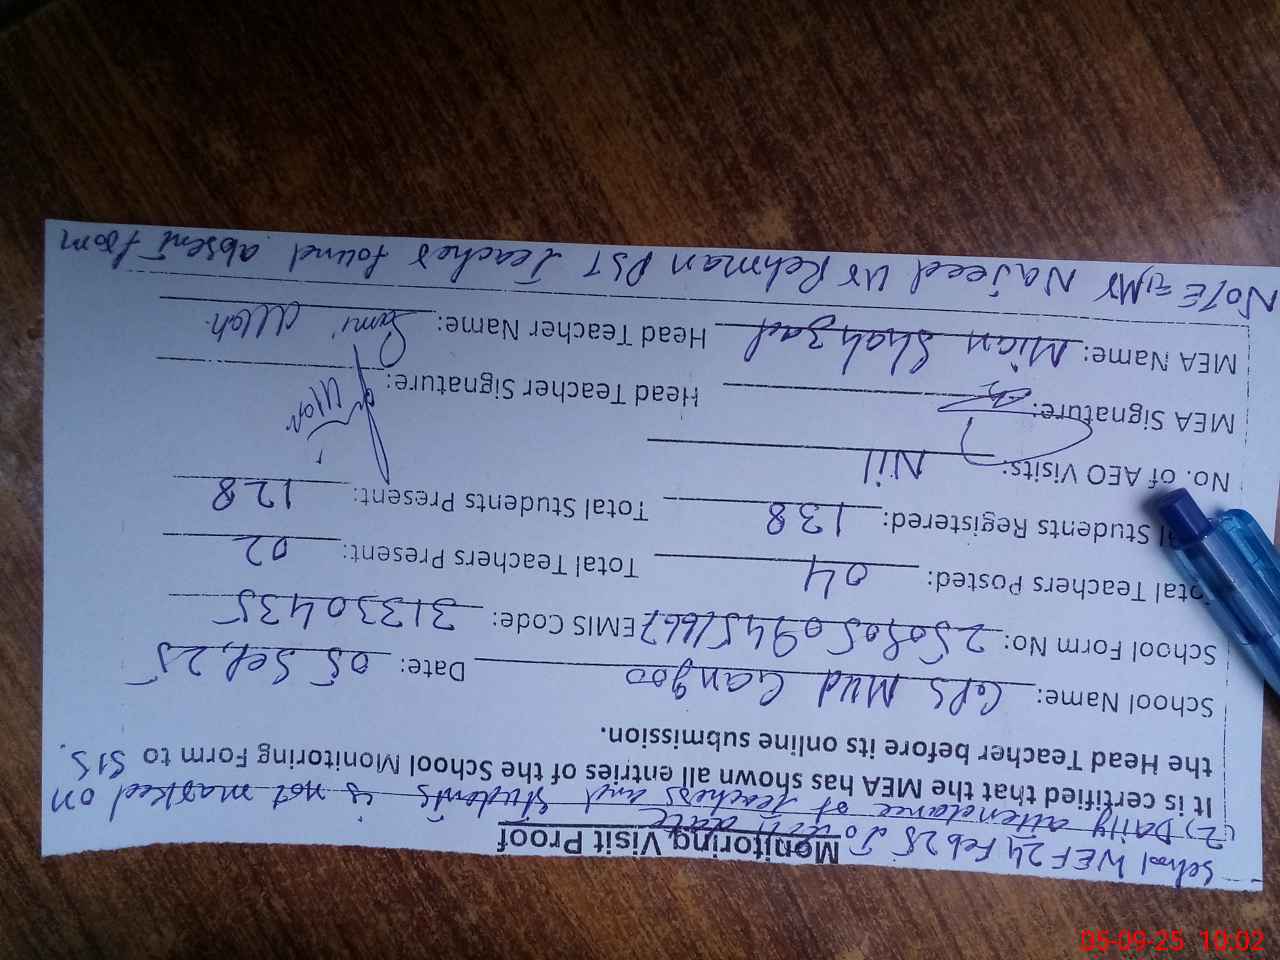 School WEF 24 Feb 25 To till date
Monitoring Visit Proof
2) Daily attendance of teachers and students is not marked on SIS.
It is certified that the MEA has shown all entries of the School Monitoring Form to
the Head Teacher before its online submission.
School Name: GPS Mud Gangoo Date: 05 Sep, 25
School Form No: EMIS Code: 31330435
Total Teachers Posted: 04 Total Teachers Present: 02
al Students Registered: 138 Total Students Present: 128
No. of AEO Visits: Nil
MEA Signature: Head Teacher Signature:
MEA Name: Mian Shahzad Head Teacher Name: Sami Ullah
NOTE = 1, Mr Najeed Ur Rehman PST Teacher found absent from
05-09-25 10:02